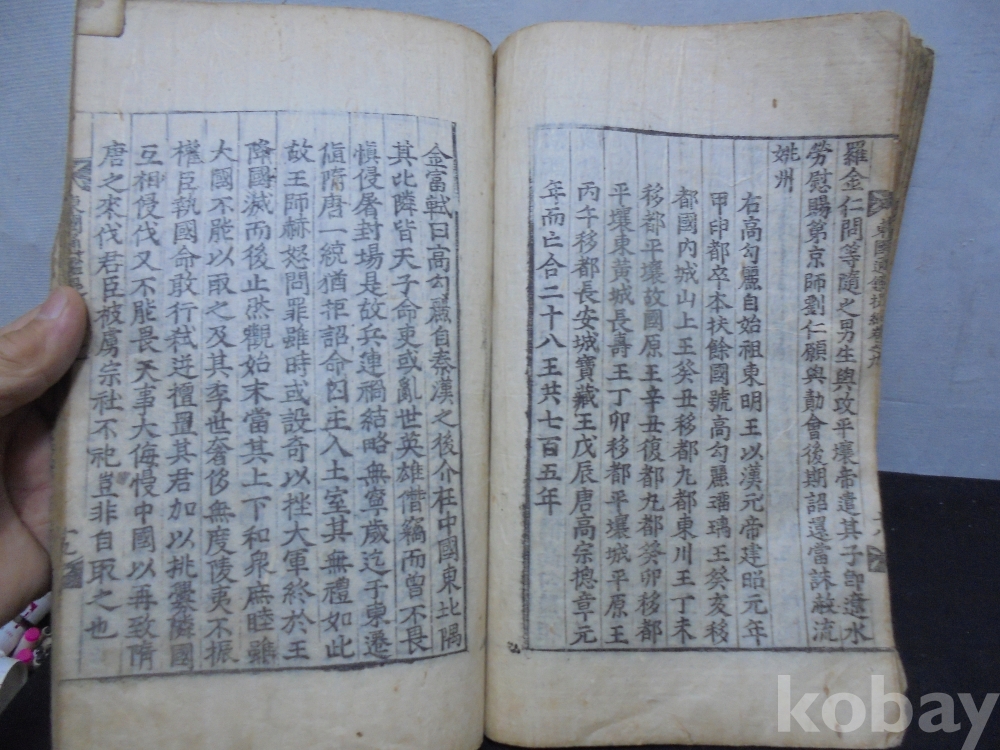 羅金仁問等隨之男生與攻平壤帝遣其子即遼水
勞慰賜第京師劉仁願與勣會後期詔還當誅赦流
姚州
右高勾麗自始祖東明王以漢元帝建昭元年
甲申都卒本扶餘國號高勾麗璢璃王癸亥移
都國內城山上王癸丑移都九都東川王丁未
移都平壤故國原王辛丑復都九都癸卯移都
平壤東黃城長壽王丁卯移都平壤城平原王
丙午移都長安城寶藏王戊辰唐高宗摠章元
年而亡合二十八王共七百五年
金富軾曰高勾麗自秦漢之後介在中國東北隅
其北隣皆天子命吏或亂世英雄僭竊而曾不畏
慎侵屠封場是故兵連禍結略無寧歲迄于東遷
値隋唐一統猶拒詔命囚王人土室其無禮如此
故王師赫怒問罪雖時或設奇以挫大軍終於王
降國滅而後止然觀始末當其上下和衆庶睦雖
大國不能以取之及其季世奢侈無度陵夷不振
權臣執國命敢行弑逆擅置其君加以挑釁隣國
互相侵伐又不能畏天事大侮慢中國以再致隋
唐之來伐君臣被虜宗社不祀豈非自取之也
kobay